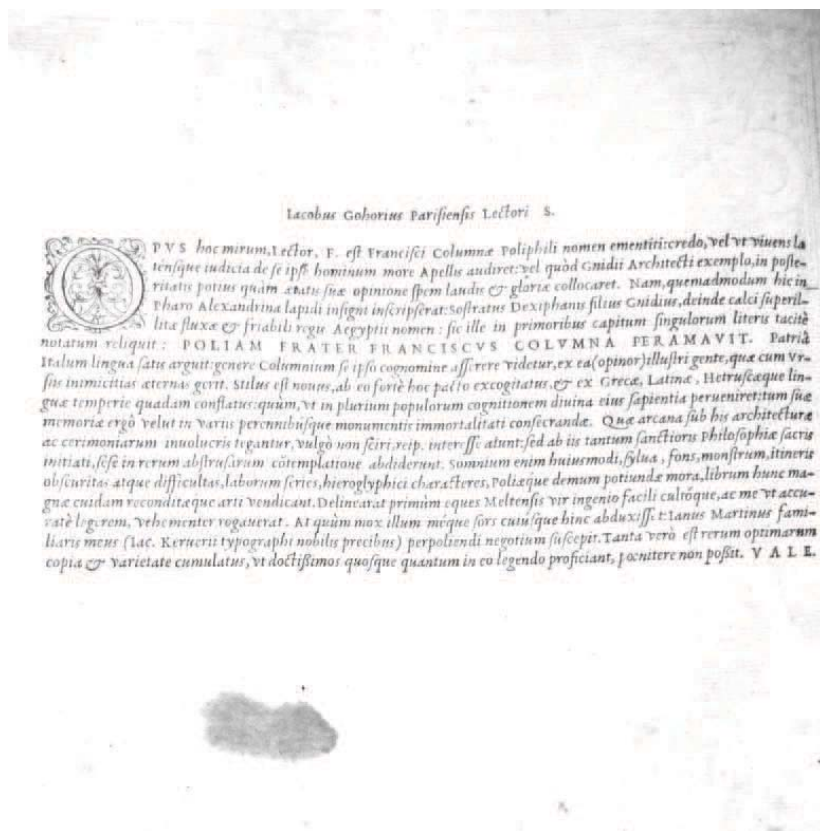 Iacobus Gohorius Parisiensis Lectori S.
OPVS hoc mirum, Lector, F. est Francisci Columnæ Poliphili nomen ementiti: credo, vel vt viuens la
tensque iudicia de se ipse hominum more Apellis audiret: vel quòd Gnidii Architecti exemplo, in poste-
ritatis potius quàm ætatis suæ opinione spem laudis & gloriæ collocaret. Nam, quemadmodum hic in
Pharo Alexandrina lapidi insigni inscripserat: Sostratus Dexiphanis filius Gnidius, deinde calci superil-
litæ fluxæ & friabili regis Aegyptii nomen: sic ille in primoribus capitum singulorum literis tacitè
notatum reliquit: POLIAM FRATER FRANCISCVS COLVMNA PERAMAVIT. Patriâ
Italum lingua satis arguit: genere Columnium se ipso cognomine asserere videtur, ex ea (opinor) illustri gente, quæ cum Vr-
sis inimicitias æternas gerit. Stilus est nouus, ab eo fortè hoc pacto excogitatus, & ex Græcæ, Latinæ, Hetruscæque lin-
guæ temperie quadam conflatus: quùm, vt in plurium populorum cognitionem diuina eius sapientia perueniret: tum suæ
memoriæ ergô velut in variis perennibusque monumentis immortalitati consecrandæ. Quæ arcana sub his architecturæ
ac cerimoniarum inuolucris tegantur, vulgò non sciri, reip. interesse aiunt: sed ab iis tantum sanctioris Philosophiæ sacris
initiati, sese in rerum abstrusarum cõtemplatione abdiderunt. Somnium enim huiusmodi, sylua, fons, monstrum, itineris
obscuritas atque difficultas, laborum series, hieroglyphici characteres, Poliæque demum potiundæ mora, librum hunc ma-
gnæ cuidam reconditæque arti vendicant. Delinearat primùm eques Meltensis vir ingenio facili cultóque, ac me vt accu-
ratè legerem, vehementer rogauerat. At quùm mox illum méque sors cuiusque hinc abduxisset: Ianus Martinus fami-
liaris meus (Iac. Keruerii typographi nobilis precibus) perpoliendi negotium suscepit. Tanta verò est rerum optimarum
copia & varietate cumulatus, vt doctissimos quosque quantum in eo legendo proficiant, pœnitere non possit. VALE.